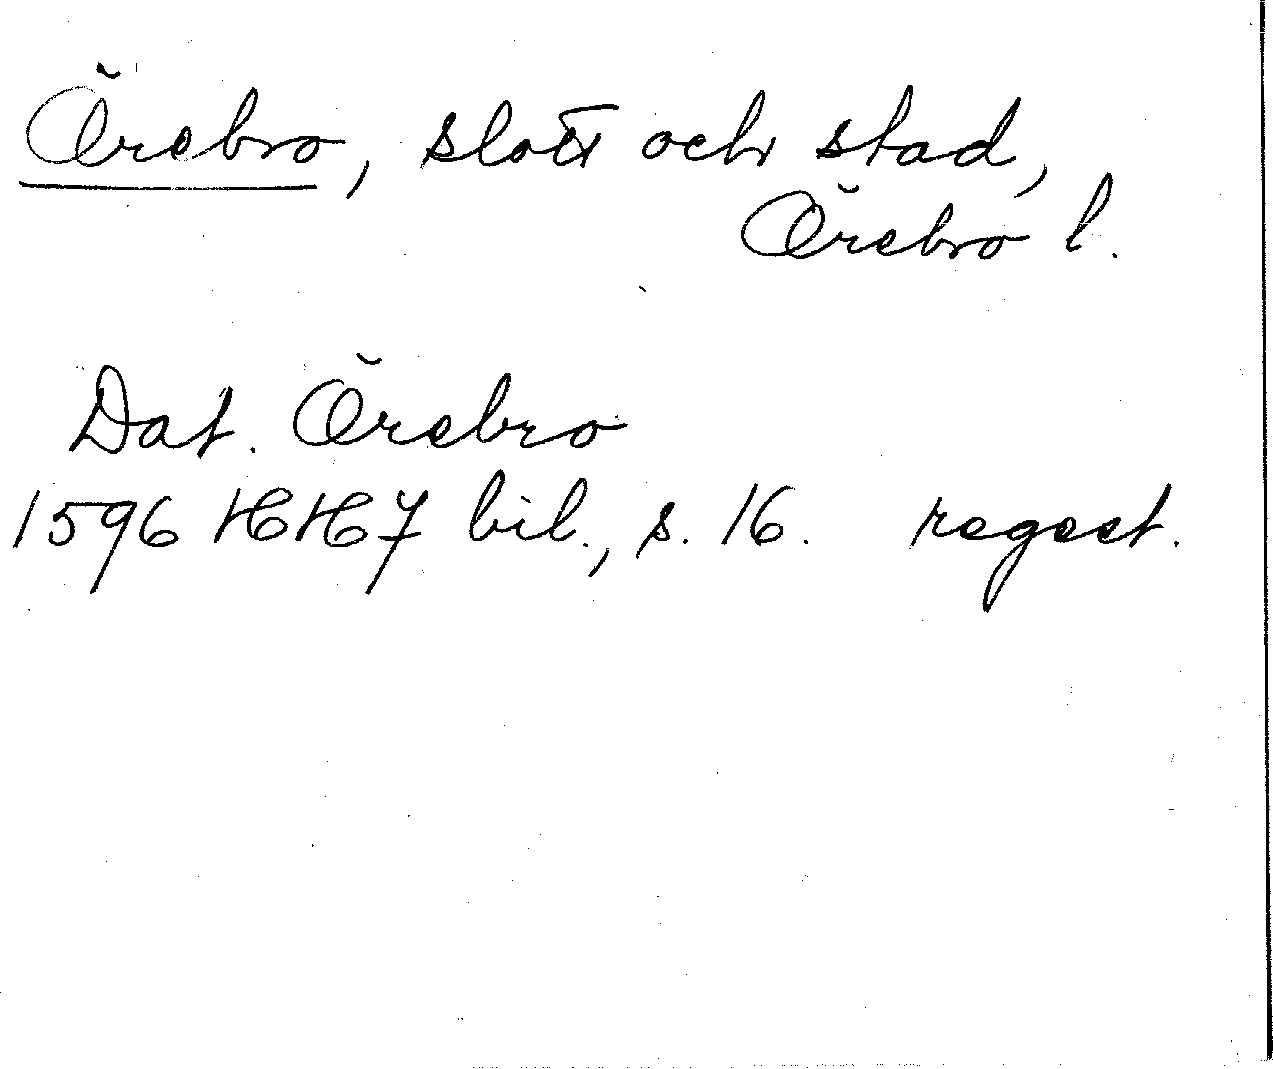 Örebro, slott och stad,
Örebro l.
Dat. Örebro
1596 HH 7 bil., s. 16. regest.